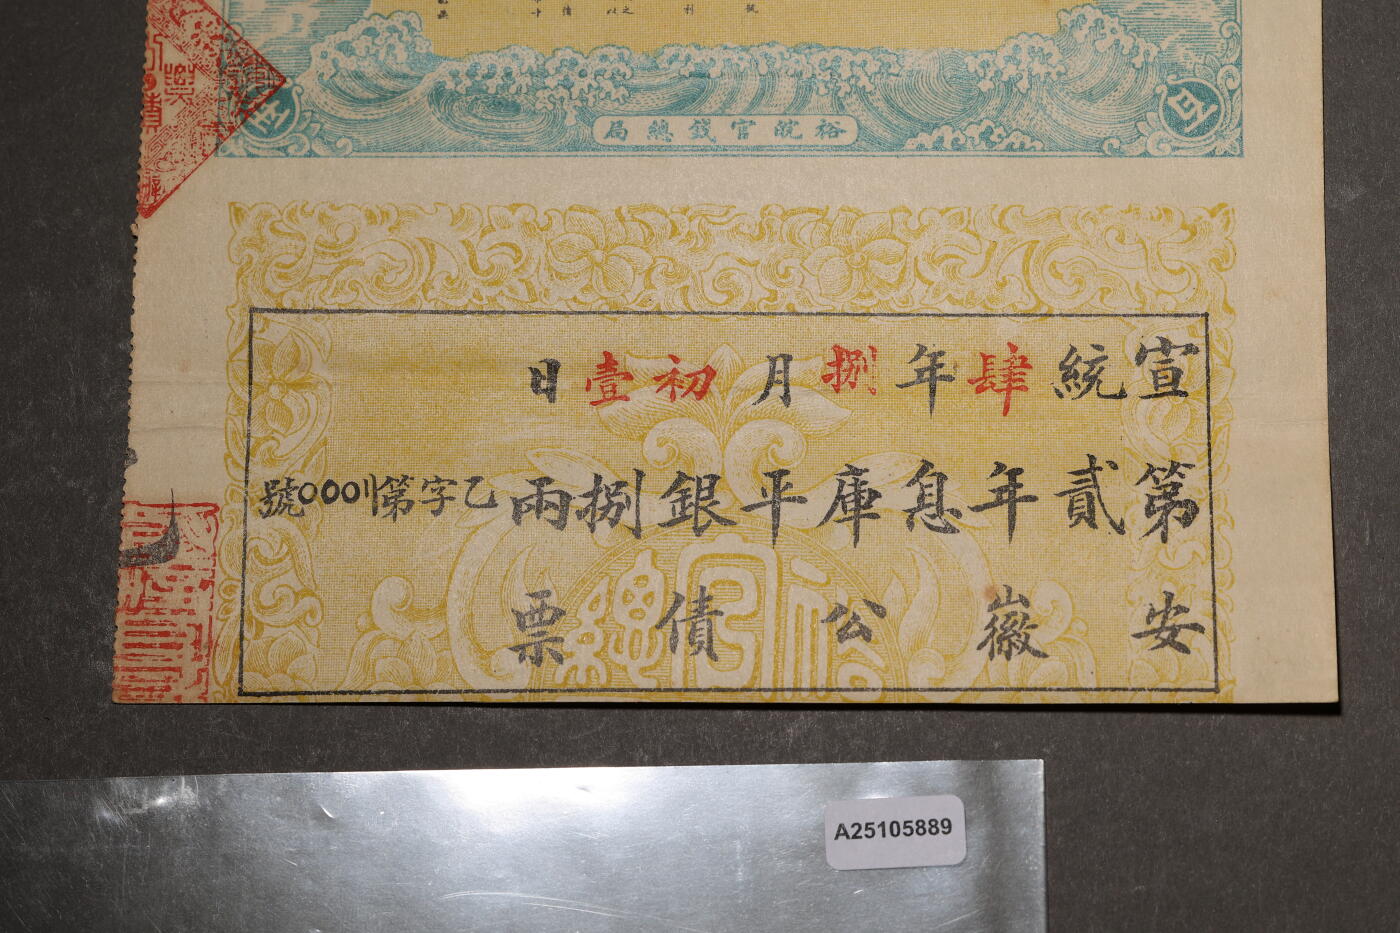 裕皖官錢總局
宣統肆年捌月初壹日
第貳年息庫平銀捌兩 乙字第 號
安徽公債票
A25105889